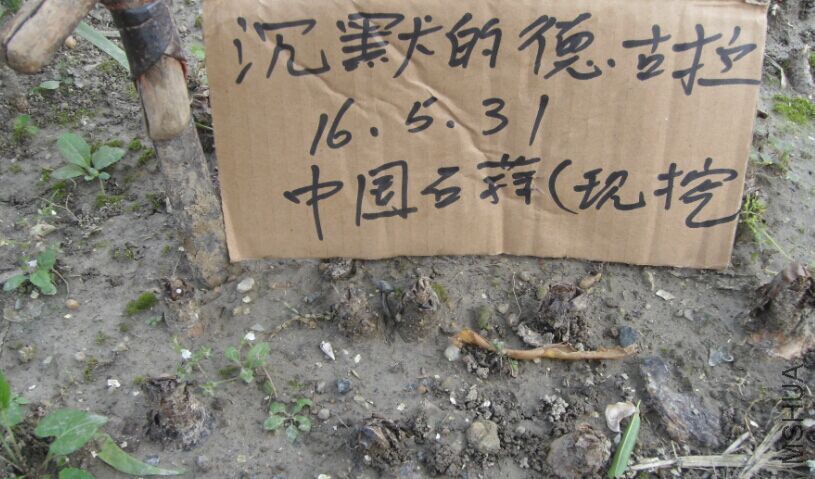 沉默的德.古拉
16.5.31
中国石蒜(现挖
MSHUA